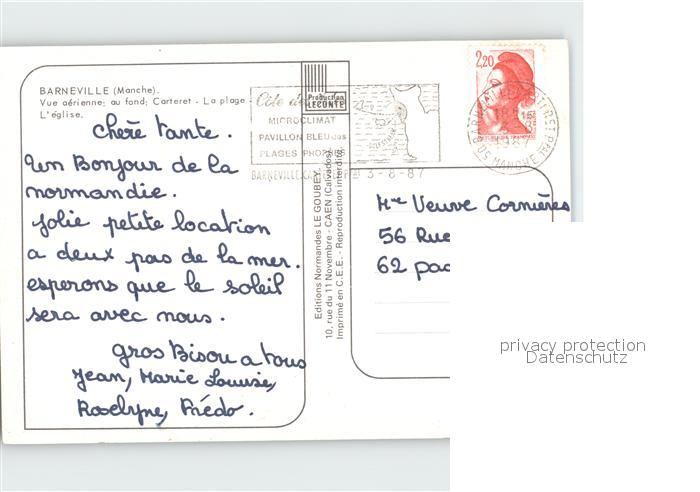 BARNEVILLE (Manche).
Vue aérienne; au fond; Carteret - La plage -
L'église.
chère tante.
un Bonjour de la
normandie.
jolie petite location
a deux pas de la mer.
esperons que le soleil
sera avec nous.
gros Bisou a tous
Jean, Marie Louise,
Roselyne, Frédo.
Production
LECONTE
Côte de
MICROCLIMAT
PAVILLON BLEU des
PLAGES
BARNEVILLE 3-8-87
Editions Normandes LE GOUBEY
10, rue du 11 Novembre - CAEN (Calvados)
Imprimé en C.E.E. - Reproduction interdite
2,20
50 MANCHE
Mme Veuve Cornières
56 Rue
62
privacy protection
Datenschutz